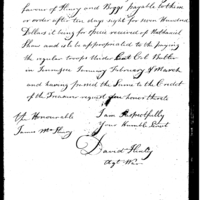 favour of Henry and Boggs payable to them
or order after ten days sight for seven Hundred
Dollars it being for specie received of Nathaniel
Shaw and to be appropriated to the paying
the regular troops under Lieut Col Butler
in Tennessee January February & March
and having passed the Same to the Credit
of the Treasurer request you honor thereto
The Honourable
James McHenry
I am Respectfully
Your Humble Servt
David Henley
Agt War